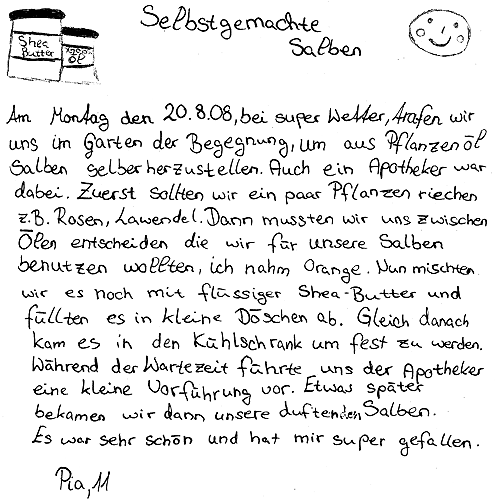 Selbstgemachte
Salben
Shea
Butter
öl
Am Montag den 20.8.08, bei super Wetter, trafen wir
uns im Garten der Begegnung, um aus Pflanzenöl
Salben selber herzustellen. Auch ein Apotheker war
dabei. Zuerst sollten wir ein paar Pflanzen riechen
z.B. Rosen, Lawendel. Dann mussten wir uns zwischen
Ölen entscheiden die wir für unsere Salben
benutzen wollten, ich nahm Orange. Nun mischten
wir es noch mit flüssiger Shea-Butter und
füllten es in kleine Döschen ab. Gleich danach
kam es in den Kühlschrank um fest zu werden.
Während der Wartezeit führte uns der Apotheker
eine kleine Vorführung vor. Etwas später
bekamen wir dann unsere duftenden Salben.
Es war sehr schön und hat mir super gefallen.
Pia, 11